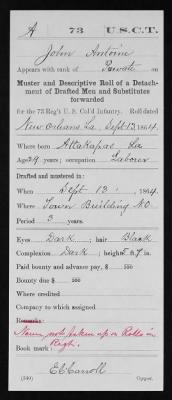 A 73 U.S.C.T.
John Antoine
Appears with rank of Private on
Muster and Descriptive Roll of a Detach-
ment of Drafted Men and Substitutes
forwarded
for the 73 Reg't U. S. Col'd Infantry. Roll dated
New Orleans La, Sept 13, 1864.
Where born Attakapas La
Age 29 years; occupation Laborer
Drafted and mustered in:
When Sept 13, 1864.
Where Town Building N.O.
Period 3 years.
Eyes Dark; hair Black
Complexion Dark; height 5 ft. 7 in.
Paid bounty and advance pay, $ 100
Bounty due $ 100
Where credited
Company to which assigned
Remarks:
Name not taken up on Rolls in
Regt.
Book mark:
E. Carroll
(340) Copyist.